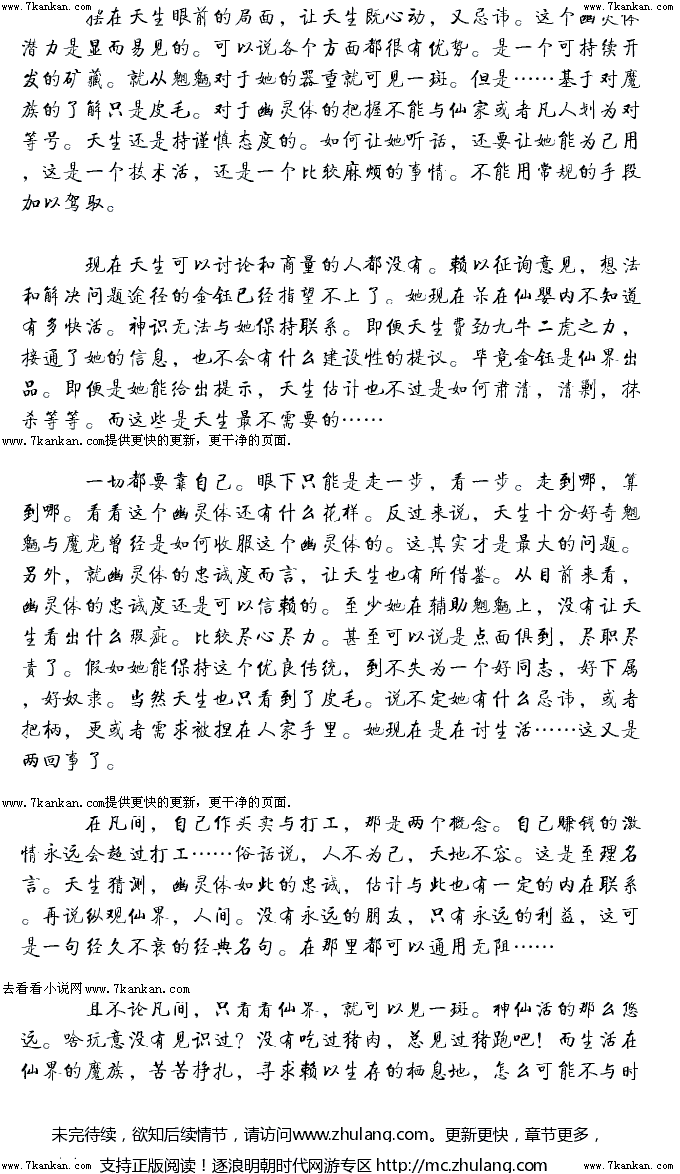 www.7kankan.com www.7kankan.com
摆在天生眼前的局面，让天生既心动，又忌讳。这个幽灵体
潜力是显而易见的。可以说各个方面都很有优势。是一个可持续开
发的矿藏。就从魑魅对于她的器重就可见一斑。但是……基于对魔
族的了解只是皮毛。对于幽灵体的把握不能与仙家或者凡人划为对
等号。天生还是持谨慎态度的。如何让她听话，还要让她能为己用
，这是一个技术活，还是一个比较麻烦的事情。不能用常规的手段
加以驾驭。
现在天生可以讨论和商量的人都没有。赖以征询意见，想法
和解决问题途径的金钰已经指望不上了。她现在呆在仙婴内不知道
有多快活。神识无法与她保持联系。即便天生费劲九牛二虎之力，
接通了她的信息，也不会有什么建设性的提议。毕竟金钰是仙界出
品。即便是她能给出提示，天生估计也不过是如何肃清，清剿，抹
杀等等。而这些是天生最不需要的……
www.7kankan.com提供更快的更新，更干净的页面.
一切都要靠自己。眼下只能是走一步，看一步。走到哪，算
到哪。看看这个幽灵体还有什么花样。反过来说，天生十分好奇魑
魅与魔龙曾经是如何收服这个幽灵体的。这其实才是最大的问题。
另外，就幽灵体的忠诚度而言，让天生也有所借鉴。从目前来看，
幽灵体的忠诚度还是可以信赖的。至少她在辅助魑魅上，没有让天
生看出什么瑕疵。比较尽心尽力。甚至可以说是点面俱到，尽职尽
责了。假如她能保持这个优良传统，到不失为一个好同志，好下属
，好奴隶。当然天生也只看到了皮毛。说不定她有什么忌讳，或者
把柄，更或者需求被捏在人家手里。她现在是在讨生活……这又是
两回事了。
www.7kankan.com提供更快的更新，更干净的页面.
在凡间，自己作买卖与打工，那是两个概念。自己赚钱的激
情永远会超过打工……俗话说，人不为己，天地不容。这是至理名
言。天生猜测，幽灵体如此的忠诚，估计与此也有一定的内在联系
。再说纵观仙界，人间。没有永远的朋友，只有永远的利益，这可
是一句经久不衰的经典名句。在那里都可以通用无阻……
去看看小说网www.7kankan.com
且不论凡间，只看看仙界，就可以见一斑。神仙活的那么悠
远。啥玩意没有见识过？没有吃过猪肉，总见过猪跑吧！而生活在
仙界的魔族，苦苦挣扎，寻求赖以生存的栖息地，怎么可能不与时
未完待续，欲知后续情节，请访问www.zhulang.com。更新更快，章节更多，
支持正版阅读！逐浪明朝时代网游专区 http://mc.zhulang.com
www.7kankan.com www.7kankan.com